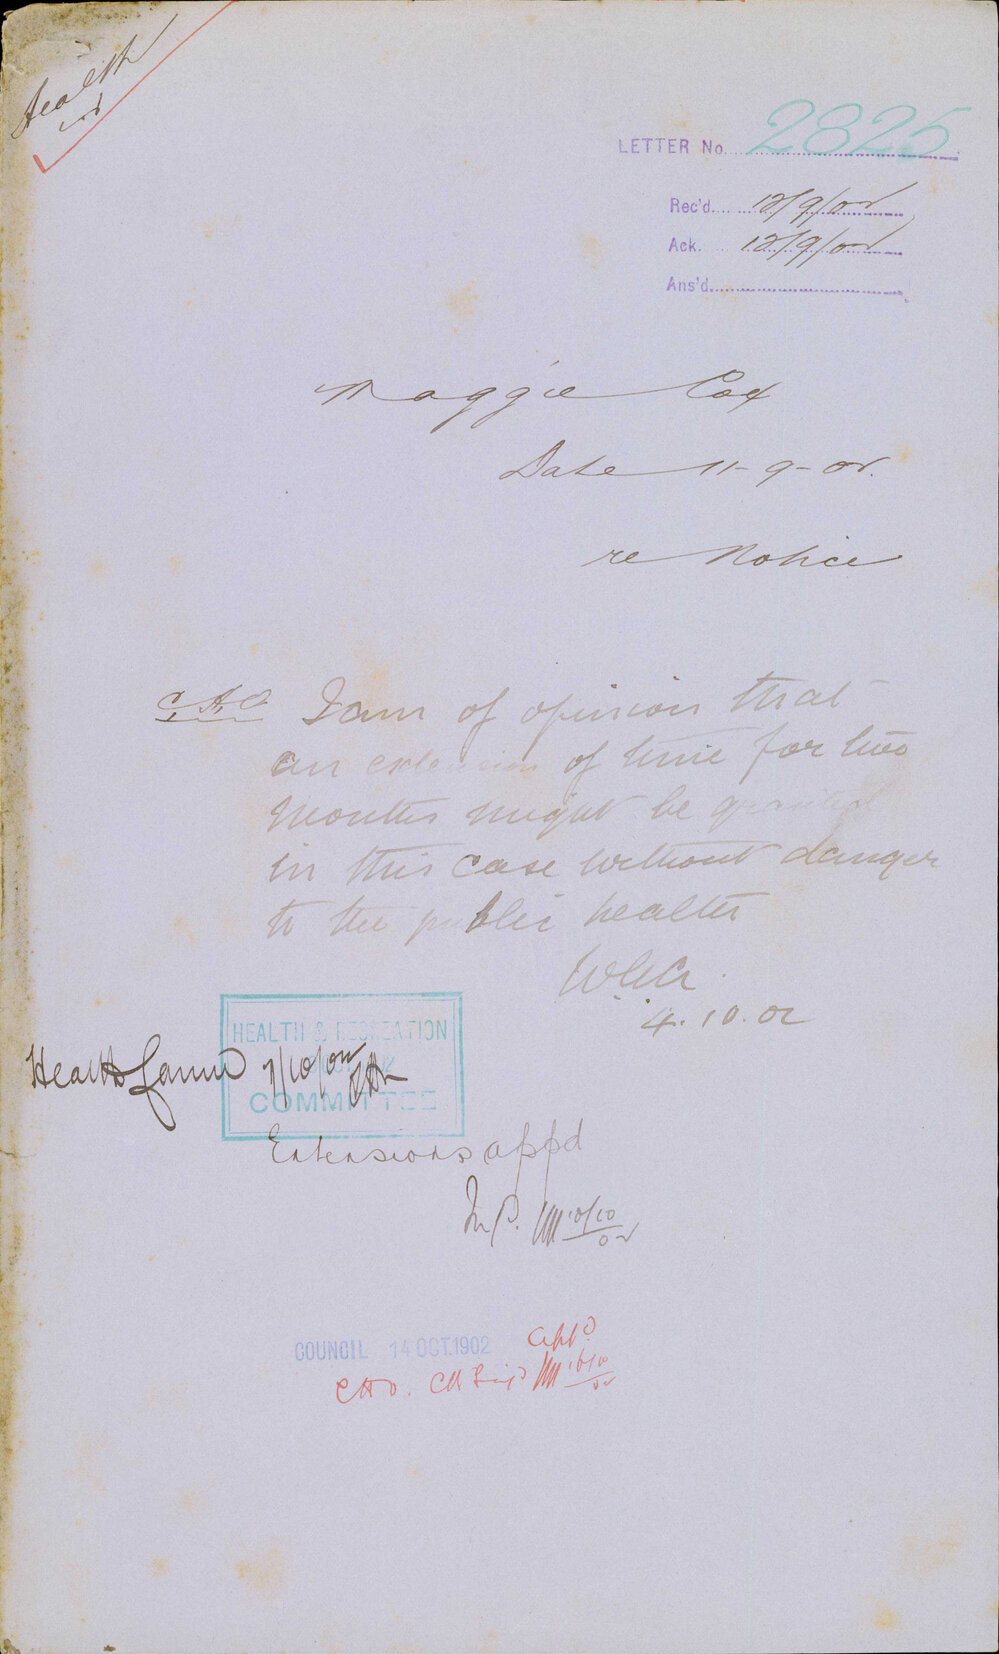 Health
LETTER No. 2825
Rec'd. 12/9/02
Ack. 12/9/02
Ans'd.
Maggie Cox
Date 11-9-02.
re Notice
C.H.O I am of opinion that
an extension of time for two
months might be granted
in this case without danger
to the public health
4.10.02
HEALTH & RECREATION
Health 7/10/02
COMMITTEE
Extensions appd
10/10/02
COUNCIL 14 OCT. 1902 appd
CHO.